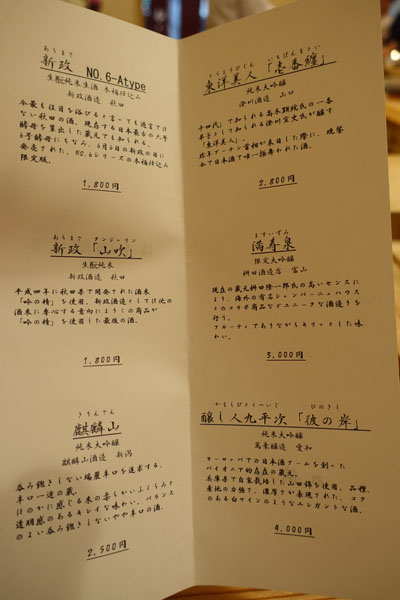 あらまさ
新政 NO.6-Atype
生酛純米生酒 木桶仕込み
新政酒造 秋田
今最も注目を浴びると言っても過言では
ない秋田の酒。現存する日本最古の六号
酵母を算出した蔵元で知られる。
6号酵母にちなみ、6月6日の新政の日に
発売された、NO.6シリーズの木桶仕込み
限定版。
1,800円
あらまさ
新政「山吹」
生酛純米
新政酒造 秋田
平成四年に秋田県で開発された酒米
「吟の精」を使用。新政酒造としては他の
酒米に専心する意向によりこの商品が
「吟の精」を使用した最後の酒。
1,800円
きりんざん
麒麟山
純米大吟醸
麒麟山酒造 新潟
呑み飽きしない端麗辛口を追求する、
辛口一途の蔵。
ほのかに感じる米の柔らかいふくらみと
透明感のあるキレイな味わい。バランス
のよい呑み飽きしないやや辛口の酒。
2,500円
とうようびじん いちばんまとい
東洋美人「壱番纏」
純米大吟醸
澄川酒造 山口
十四代で知られる高木顕統氏の一番
弟子として知られる澄川宜史氏が醸す
「東洋美人」。
昨年プーチン首相が来日した際に、晩餐
会で日本酒で唯一振舞われた酒。
2,800円
ますいずみ
満寿泉
限定大吟醸
桝田酒造店 富山
現在の蔵元桝田隆一郎氏の高いセンスに
より、海外の有名シャンパーニュハウス
とのコラボ商品などユニークな酒造りを
行う。
フルーティでありながらキリッとした味
わい。
3,000円
かもしびとくへいじ ひのきし
醸し人九平次「彼の岸」
純米大吟醸
萬乗醸造 愛知
ヨーロッパでの日本酒ブームを創った
パイオニア的存在の蔵元。
兵庫県で自家栽培した山田錦を使用。品種、
産地の力強さ、濃厚さが表現された、コク
のある白ワインのようなエレガントな酒。
4,000円